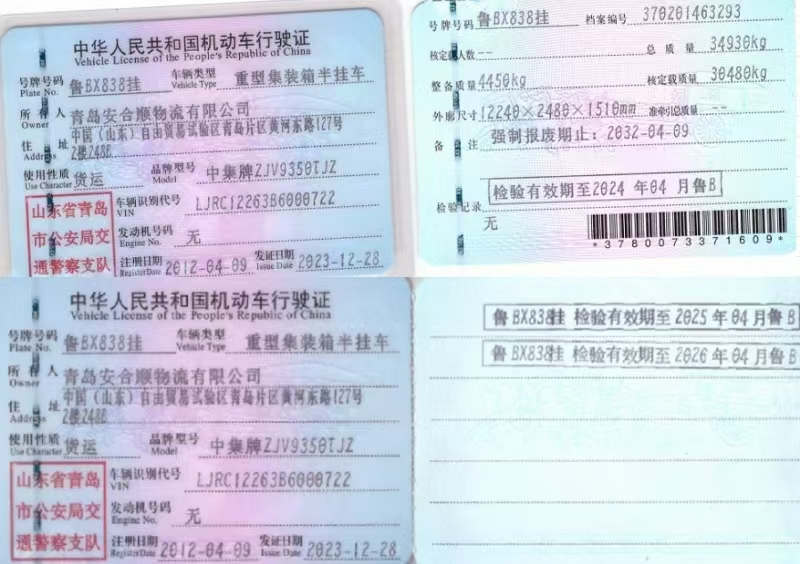 中华人民共和国机动车行驶证
Vehicle License of the People's Republic of China
号牌号码 Plate No. 鲁BX838挂 车辆类型 Vehicle Type 重型集装箱半挂车
所有人 Owner 青岛安合顺物流有限公司
住址 Address 中国（山东）自由贸易试验区青岛片区黄河东路127号
2楼2488
使用性质 Use Character 货运 品牌型号 Model 中集牌ZJV9350TJZ
山东省青岛
市公安局交
通警察支队
车辆识别代号 VIN LJRC12263B6000722
发动机号码 Engine No. 无
注册日期 Register Date 2012-04-09 发证日期 Issue Date 2023-12-28
号牌号码 鲁BX838挂 档案编号 370201463293
核定载人数 -- 总质量 34930kg
整备质量 4450kg 核定载质量 30480kg
外廓尺寸 12240×2480×1510mm 准牵引总质量 --
备注 强制报废期止：2032-04-09
检验有效期至2024年04月鲁B
检验记录
无
*3780073371609*
中华人民共和国机动车行驶证
Vehicle License of the People's Republic of China
号牌号码 Plate No. 鲁BX838挂 车辆类型 Vehicle Type 重型集装箱半挂车
所有人 Owner 青岛安合顺物流有限公司
住址 Address 中国（山东）自由贸易试验区青岛片区黄河东路127号
2楼2488
使用性质 Use Character 货运 品牌型号 Model 中集牌ZJV9350TJZ
山东省青岛
市公安局交
通警察支队
车辆识别代号 VIN LJRC12263B6000722
发动机号码 Engine No. 无
注册日期 Register Date 2012-04-09 发证日期 Issue Date 2023-12-28
鲁BX838挂 检验有效期至2025年04月鲁B
鲁BX838挂 检验有效期至2026年04月鲁B